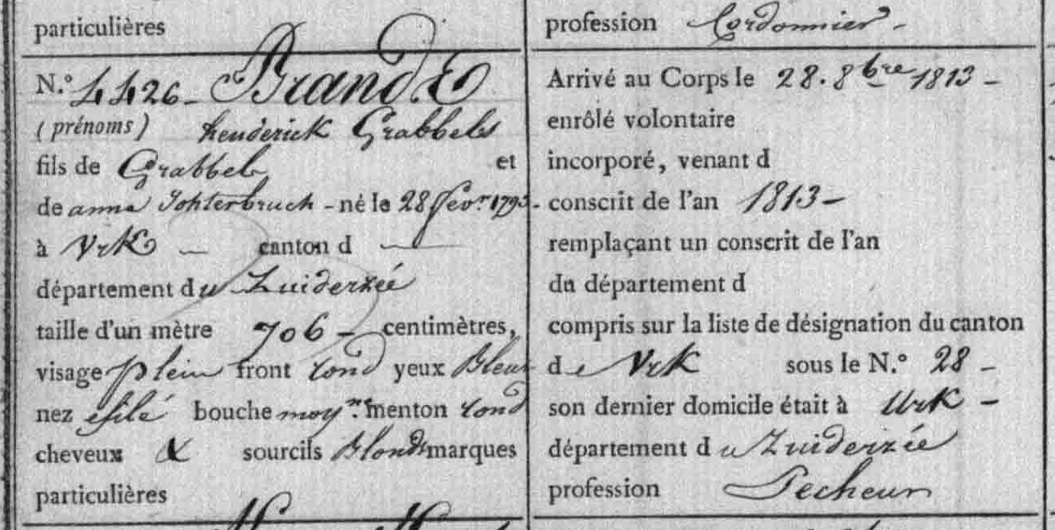 particulières
N.º 4426 - Brand E
(prénoms) henderick Grabbels
fils de Grabbels et
de anna Johterbruch - né le 28 fevr. 1793 -
à Vrk - canton d -
département du Zuiderzée
taille d'un mètre 706 - centimètres,
visage plein front rond yeux Bleus
nez efilé bouche moy.ne menton rond
cheveux & sourcils Blonds marques
particulières
profession Cordonnier -
Arrivé au Corps le 28. 8bre 1813 -
enrôlé volontaire
incorporé, venant d
conscrit de l'an 1813 -
remplaçant un conscrit de l'an
du département d
compris sur la liste de désignation du canton
de Vrk sous le N.º 28 -
son dernier domicile était à Urk -
département du Zuiderzée
profession Pecheur